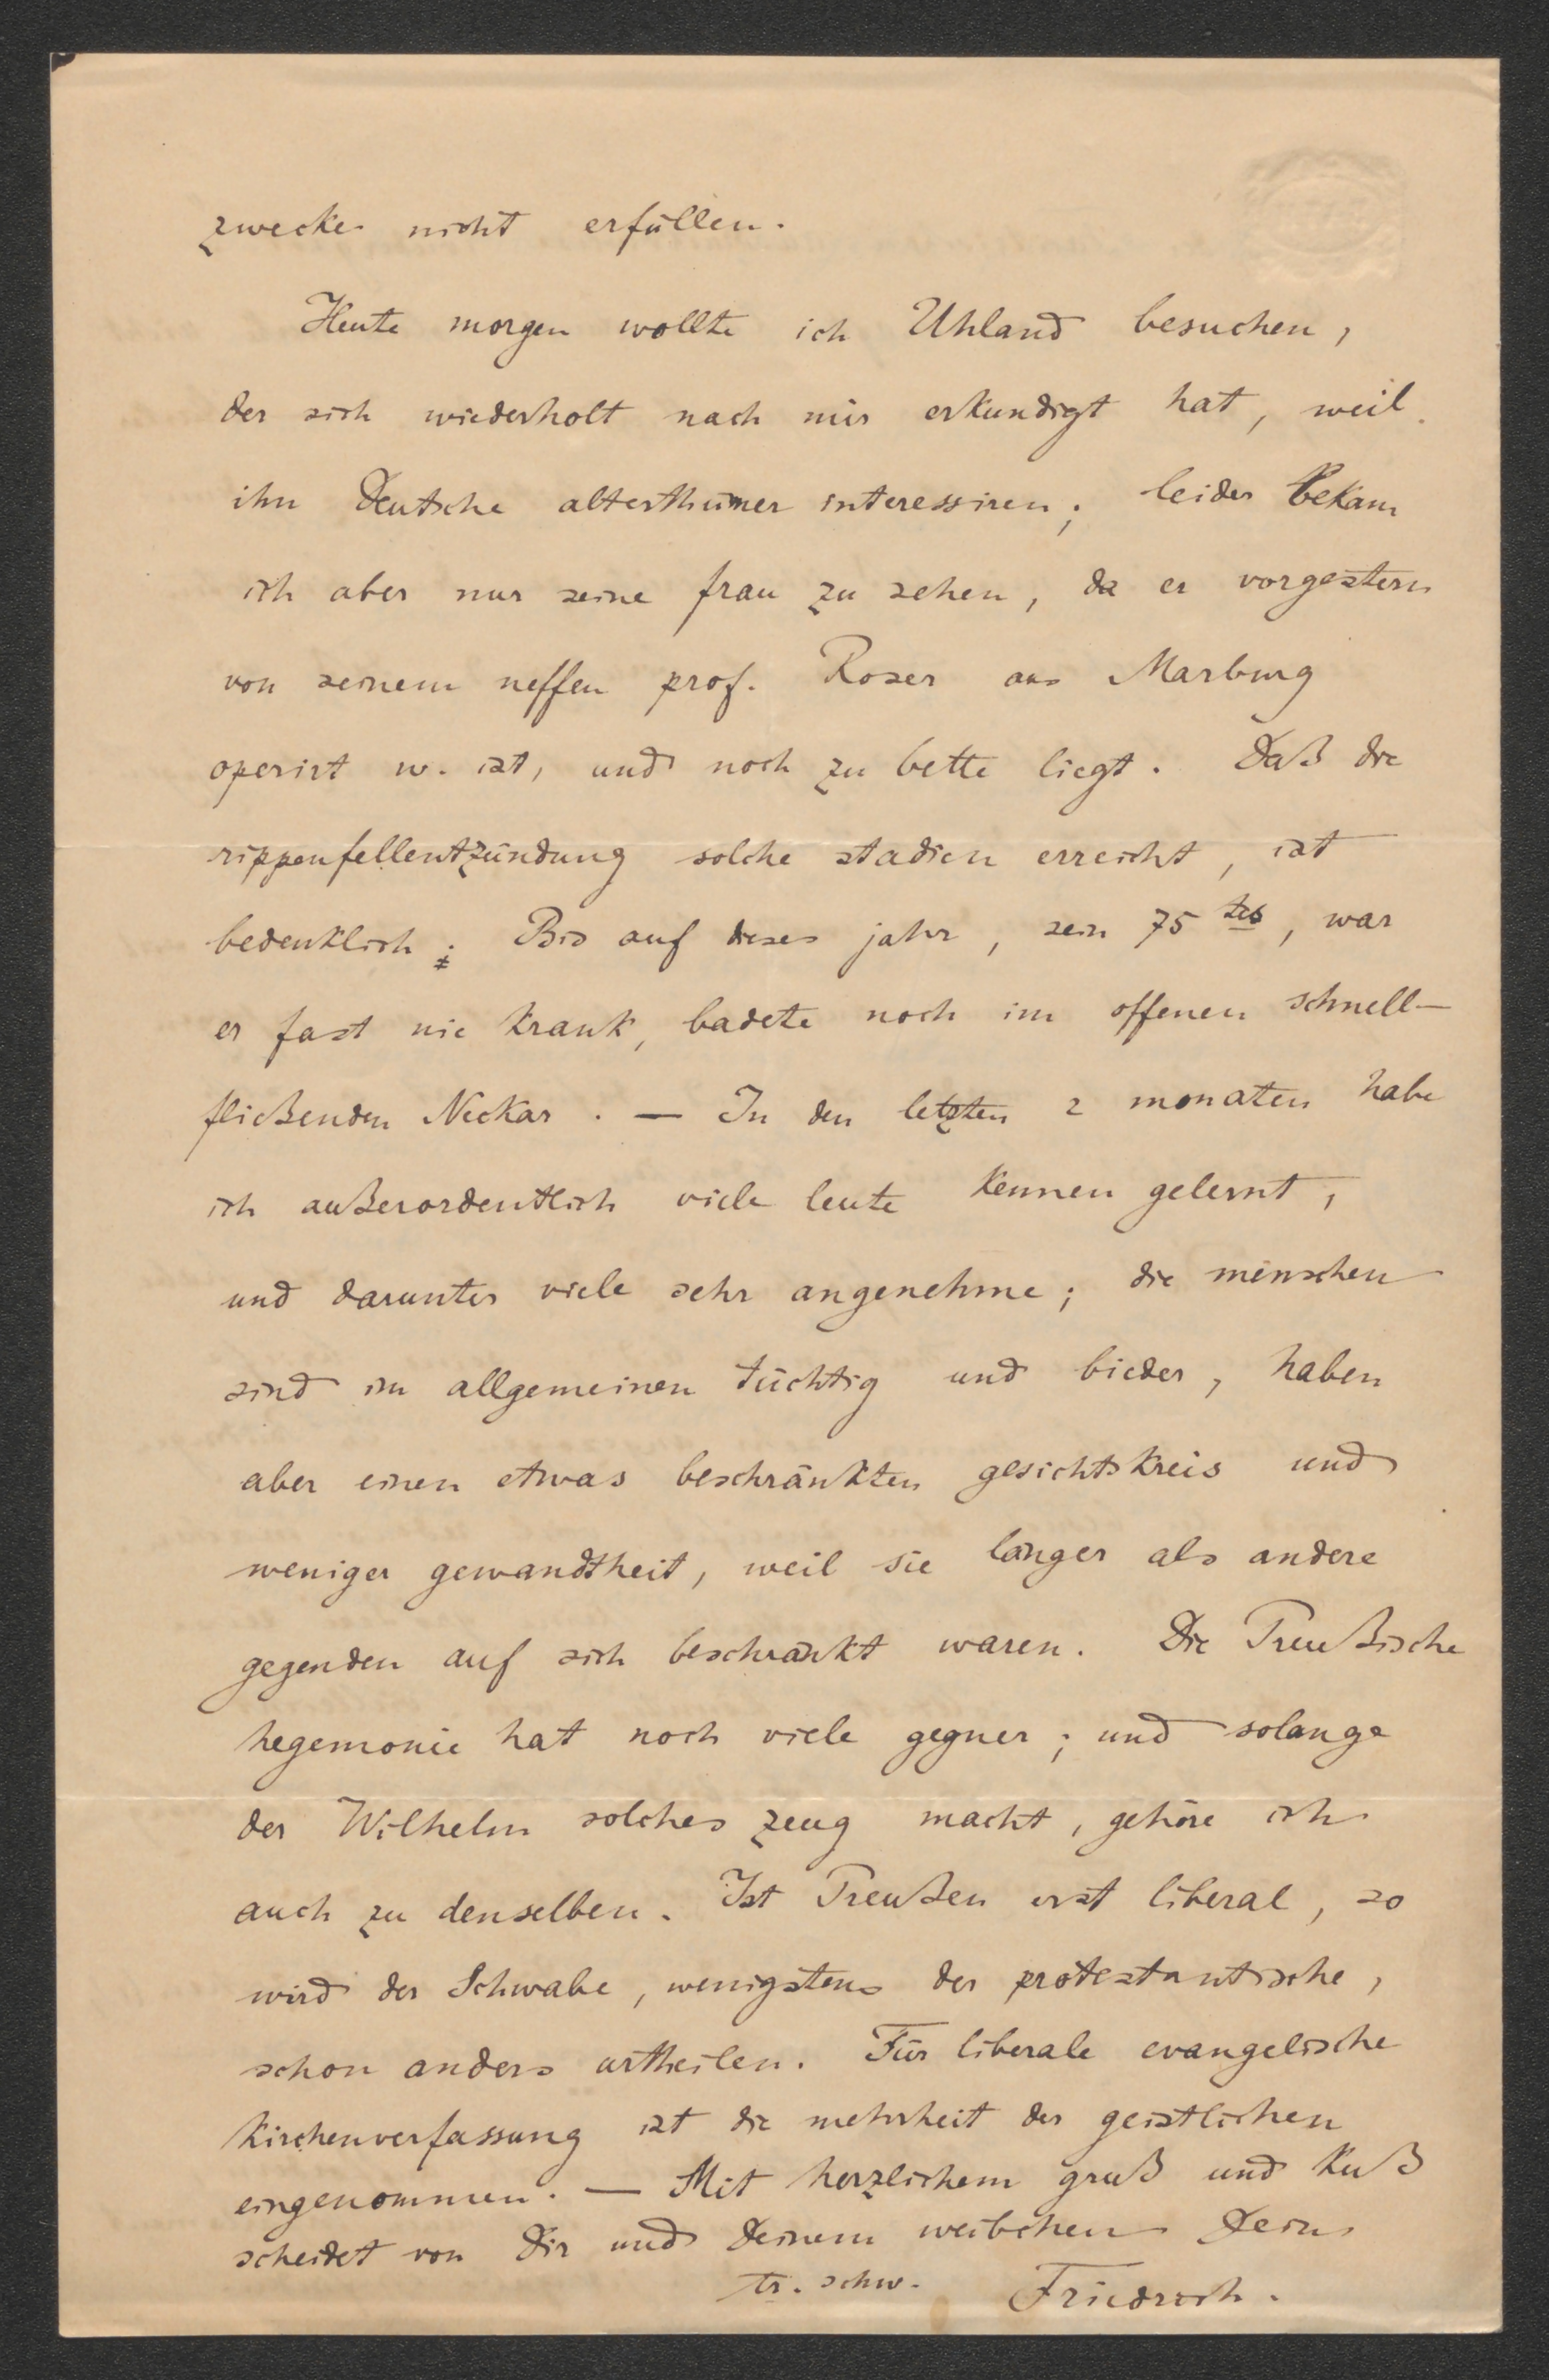 zwecke nicht erfüllen.
Heute morgen wollte ich Uhland besuchen,
der sich wiederholt nach mir erkundigt hat, weil
ihn Deutsche alterthümer interessiren; leider bekam
ich aber nur seine frau zu sehen, da er vorgestern
von seinem neffen prof. Roser aus Marburg
operirt w. ist, und noch zu bette liegt. Daß die
rippenfellentzündung solche stadien erreicht, ist
bedenklich; Bis auf dieses jahr, sein 75tes, war
er fast nie krank, badete noch im offenen schnell-
fließenden Neckar. — In den letzten 2 monaten habe
ich außerordentlich viele leute kennen gelernt,
und darunter viele sehr angenehme; die menschen
sind im allgemeinen tüchtig und bieder, haben
aber einen etwas beschränkten gesichtskreis und
weniger gewandtheit, weil sie länger als andere
gegenden auf sich beschränkt waren. Die Preußische
hegemonie hat noch viele gegner; und solange
der Wilhelm solches zeug macht, gehöre ich
auch zu denselben. Ist Preußen erst liberal, so
wird der Schwabe, wenigstens der protestantische,
schon anders urtheilen. Für liberale evangelische
kirchenverfassung ist die mehrheit der geistlichen
eingenommen. — Mit herzlichem gruß und kuß
scheidet von Dir und Deinem weibchen Dein
tr. schw. Friedrich.